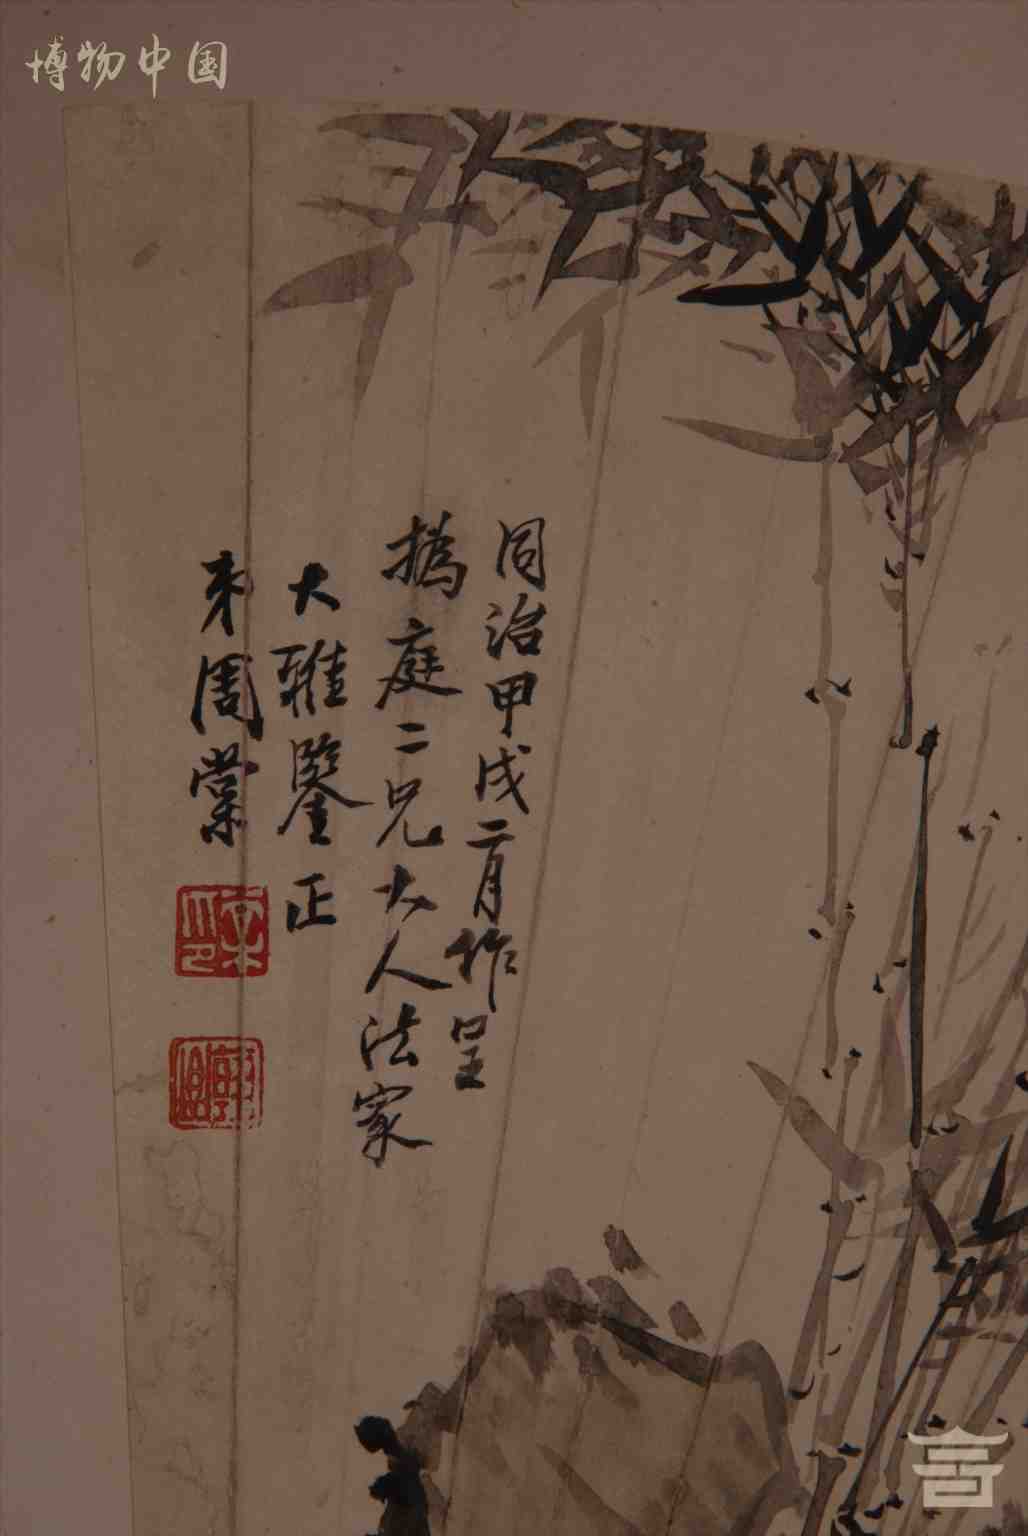 博物中国
同治甲戌二月作呈
撝庭二兄大人法家
大雅鑒正
弟周棠